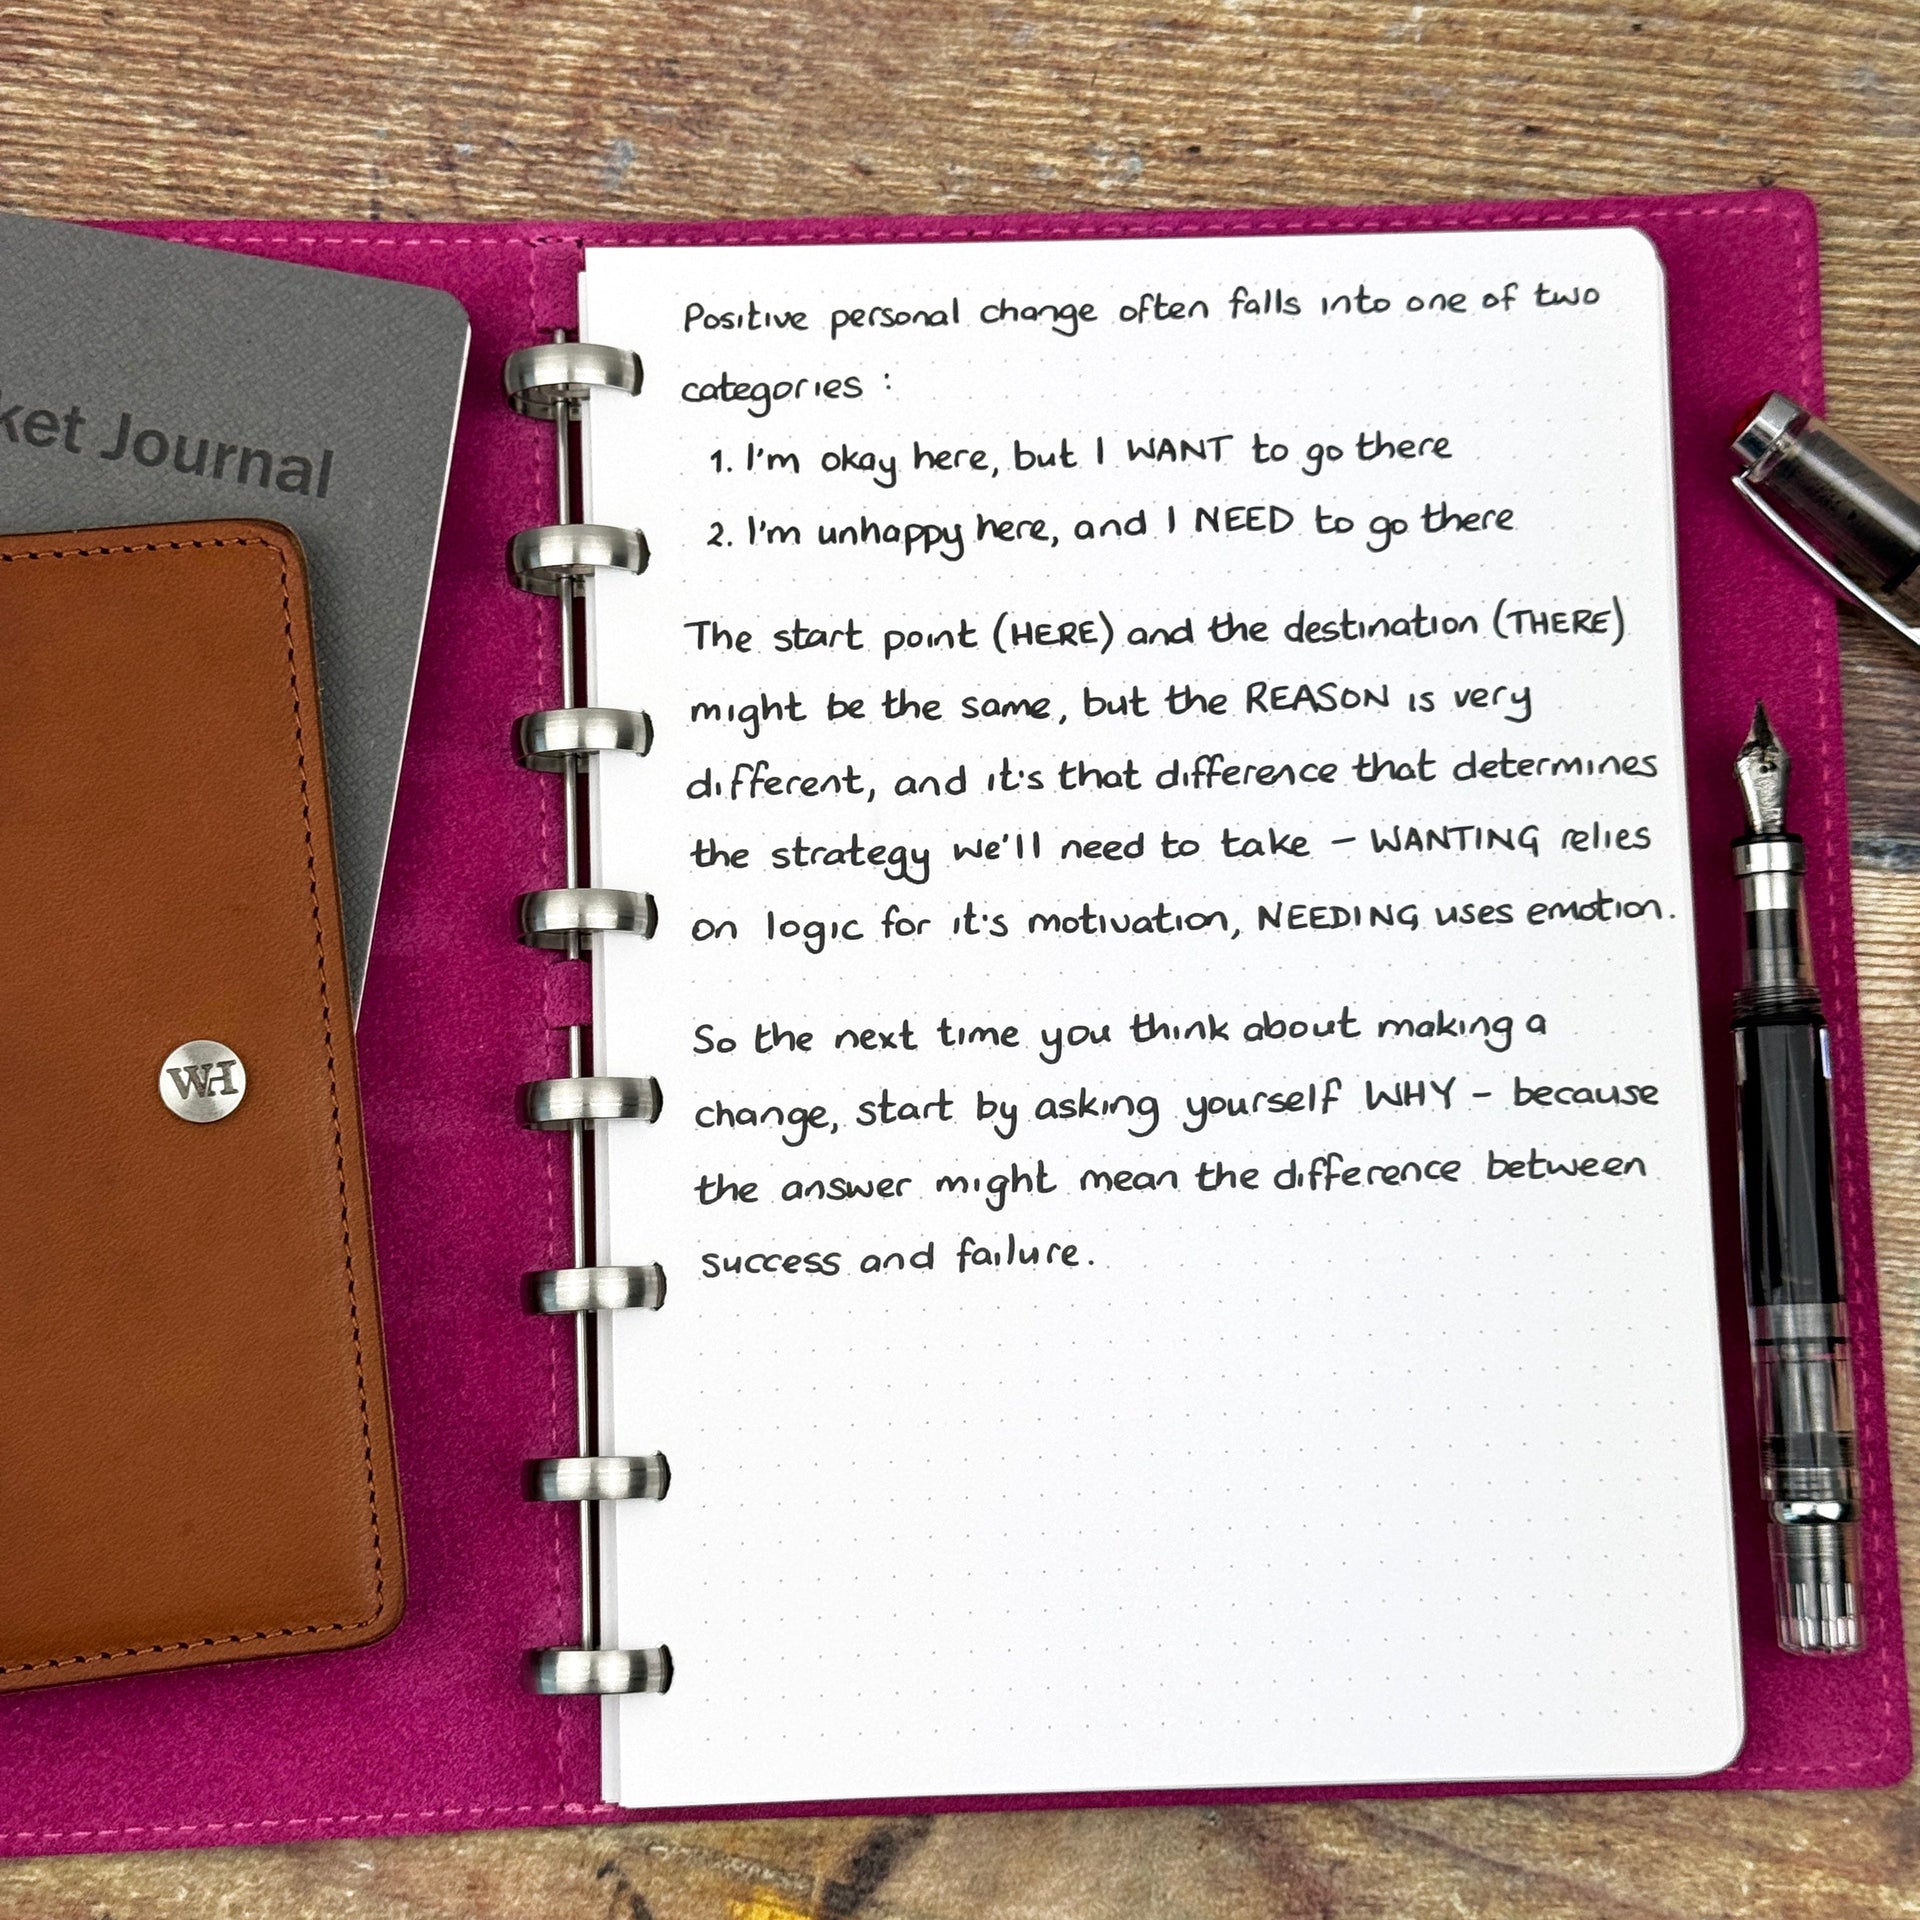 ket Journal
WH
Positive personal change often falls into one of two
categories :
1. I'm okay here, but I WANT to go there
2. I'm unhappy here, and I NEED to go there
The start point (HERE) and the destination (THERE)
might be the same, but the REASON is very
different, and it's that difference that determines
the strategy we'll need to take – WANTING relies
on logic for it's motivation, NEEDING uses emotion.
So the next time you think about making a
change, start by asking yourself WHY – because
the answer might mean the difference between
success and failure.